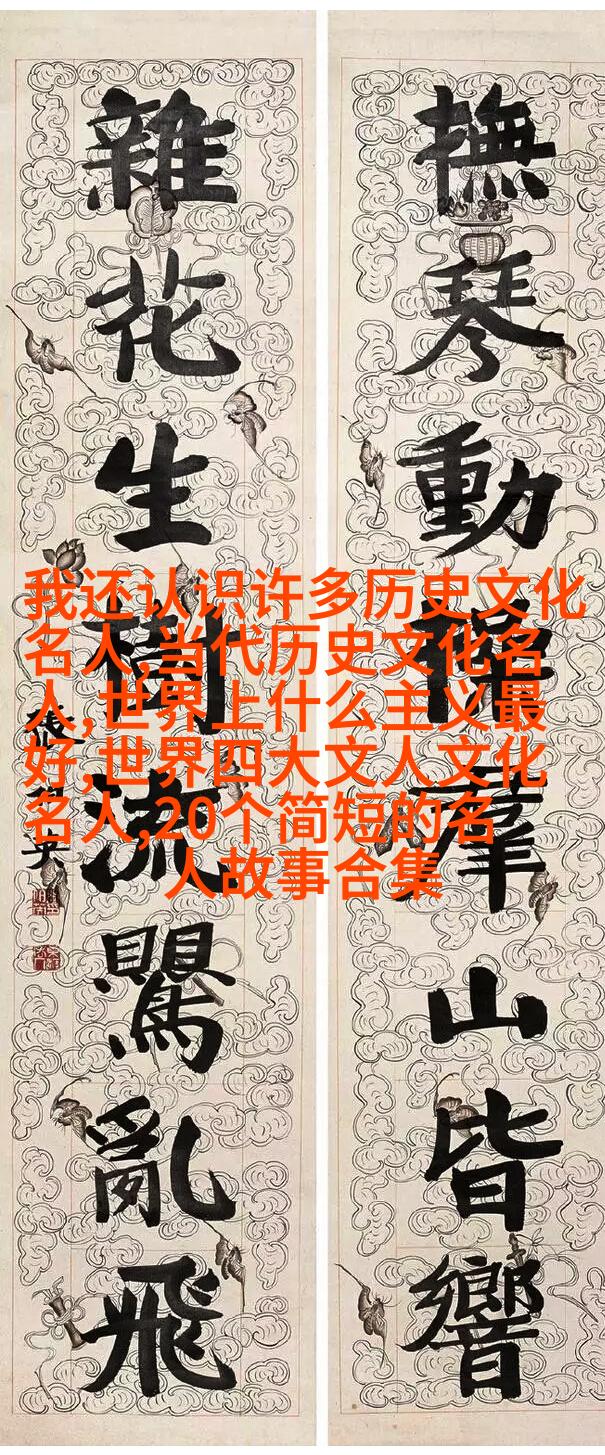 撫琴動操羣山皆響
雜花生樹流鸎亂飛
我还认识许多历史文化
名人,当代历史文化名
人,世界上什么主义最
好,世界四大文人文化
名人,20个简短的名
人故事合集